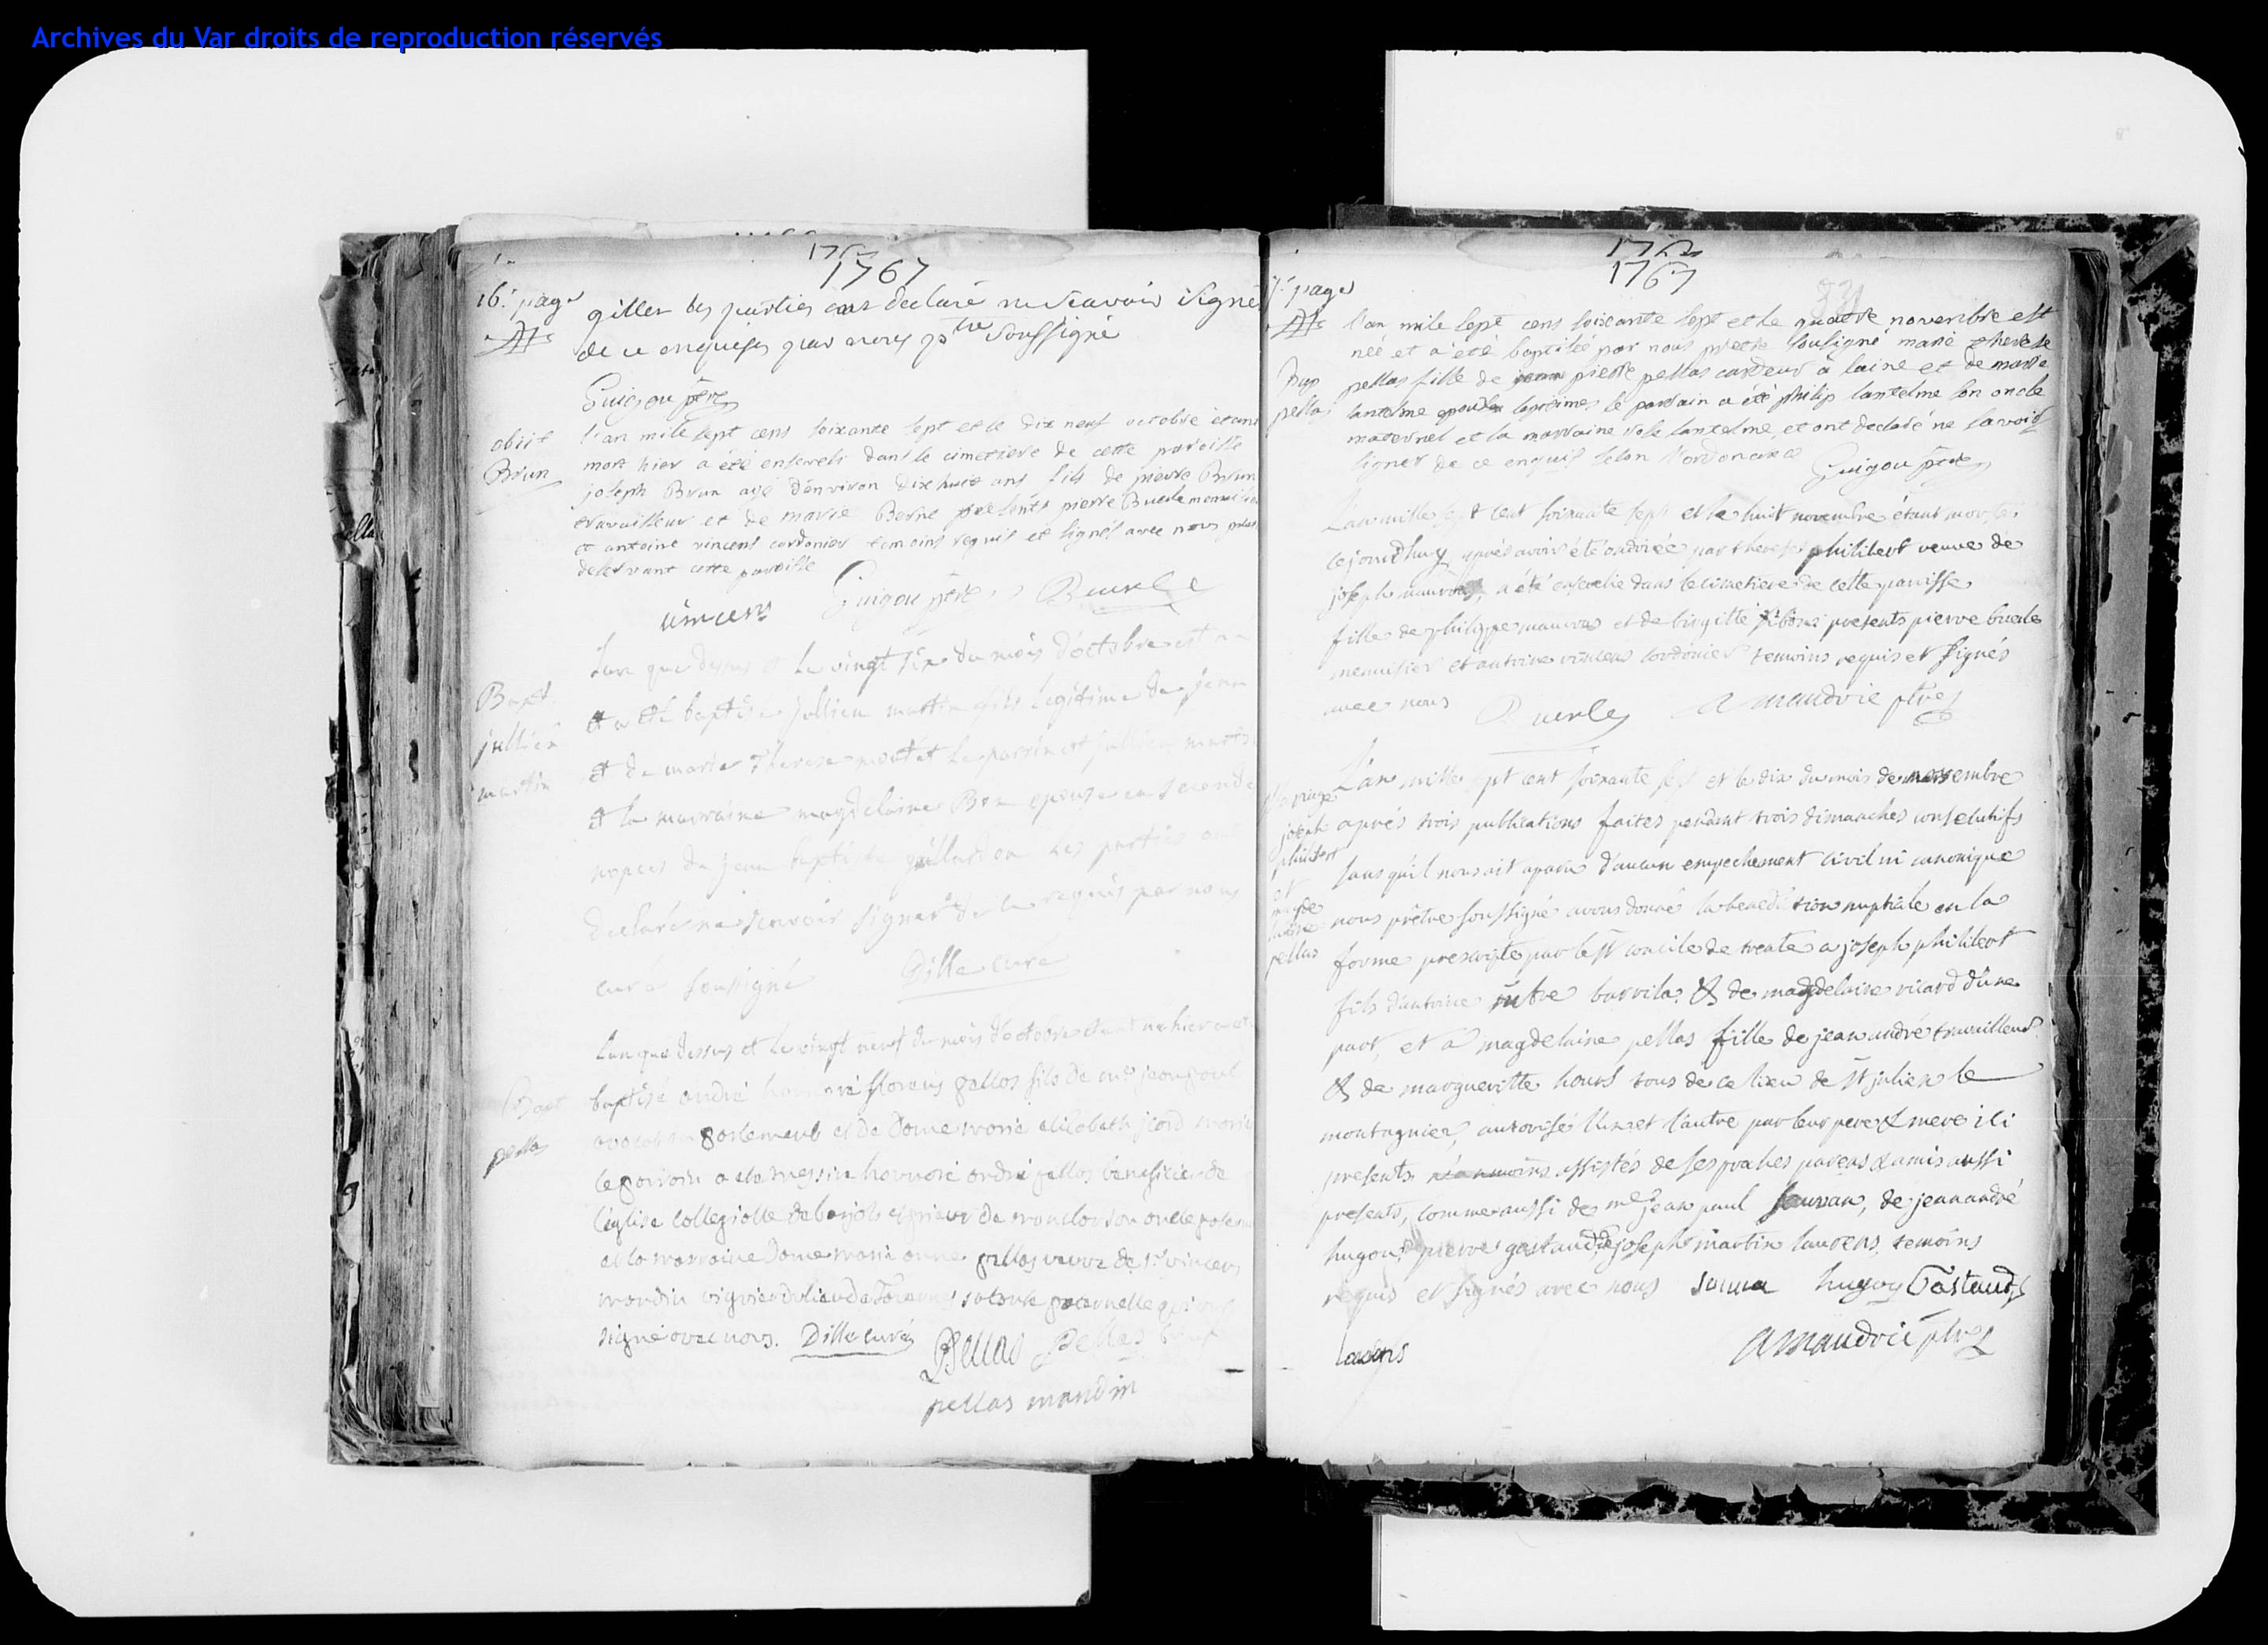 Archives du Var droits de reproduction réservés
1767
16.e page
giller les parties ont declaré ne scavoir signé
de ce enquises par nous ptre soussigné
Guigou ptre
obiit
Brun
l'an mile sept cens soixante sept et le dix neuf octobre etant
mort hier a été enseveli dans le cimetiere de cette paroisse
joseph Brun agé d'environ dixhuit ans fils de pierre Brun
travailleur et de marie Berne presents pierre Buerle menuisier
et antoine vincens cordonier temoins requis et signés avec nous ptre
deservant cette paroisse
vincens Guigou ptre Buerle
Bapt.
jullien
martin
L'an que dessus et le vingt six du mois d'octobre est né
et a été baptisé jullien martin fils legitime de jean
et de marie Therese moutet le parrin est jullien martin
et la marraine magdelaine Bon epouse en seconde
nopces de jean baptiste les parties ont
declaré ne scavoir signer de ce requis par nous
curé soussigné Dille curé
Bapt
pellas
L'an que dessus et le vingt neuf du mois d'octobre etant né hier a été
baptisé andré honnoré florens pellas fils de me jean paul
avocat en parlement et de dame marie elisabeth jcard
le parrain a eté messire honnoré andré pellas beneficier de
l'eglise collegialle de barjols et prieur de son oncle paternel
et la marraine dame marie anne pellas veuve de sr vincens
mandin viguier du lieu de sa tante paternelle qui ont
signé avec nous. Dille curé Pellas Pellas
pellas mandin
1767
page
Bap
pellas
l'an mile sept cens soixante sept et le quatre novembre est
née et a été baptisée par nous pretre sousigné marie therese
pellas fille de pierre pellas cardeur à laine et de marie
lantelme epoux legitimes le parrain a été philip lantelme son oncle
maternel et la marraine rose lantelme, et ont declaré ne savoir
signer de ce enquis selon l'ordonance Guigou ptre
L'an mille sept cent soixante sept et le huit novembre étant morte
cejourdhuy après avoir été ondoiée par therese philibert veuve de
joseph mauvas, a été ensevelie dans le cimetiere de cette paroisse
fille de philippe mauvas et de birgitte presents pierre buerle
menuisier et antoine vincens cordonier temoins requis et signés
avec nous Buerle Amaudric ptre
Mariage
joseph
philibert
et
magde
laine
pellas
L'an mille sept cent soixante sept et le dix du mois de novembre
aprés trois publications faites pendant trois dimanches consecutifs
sans qu'il nous ait aparu d'aucun empechement civil ni canonique
nous prêtre soussigné avons donné la benediction nuptiale en la
forme prescripte par le st concile de trente a joseph philibert
fils d'antoine & de magdelaine ricard d'une
part, et a magdelaine pellas fille de jean andré travailleur
& de margueritte hours tous de ce lieu de st julien le
montagnier, autorisé l'un et l'autre par leur pere & mere ici
presents assistés de ses proches parens & amis aussi
presents, comme aussi de me jean paul, de jean andré
hugou, pierre gastaud & joseph martin laurens temoins
requis et signés avec nous hugou Gastaud
Amaudric ptre